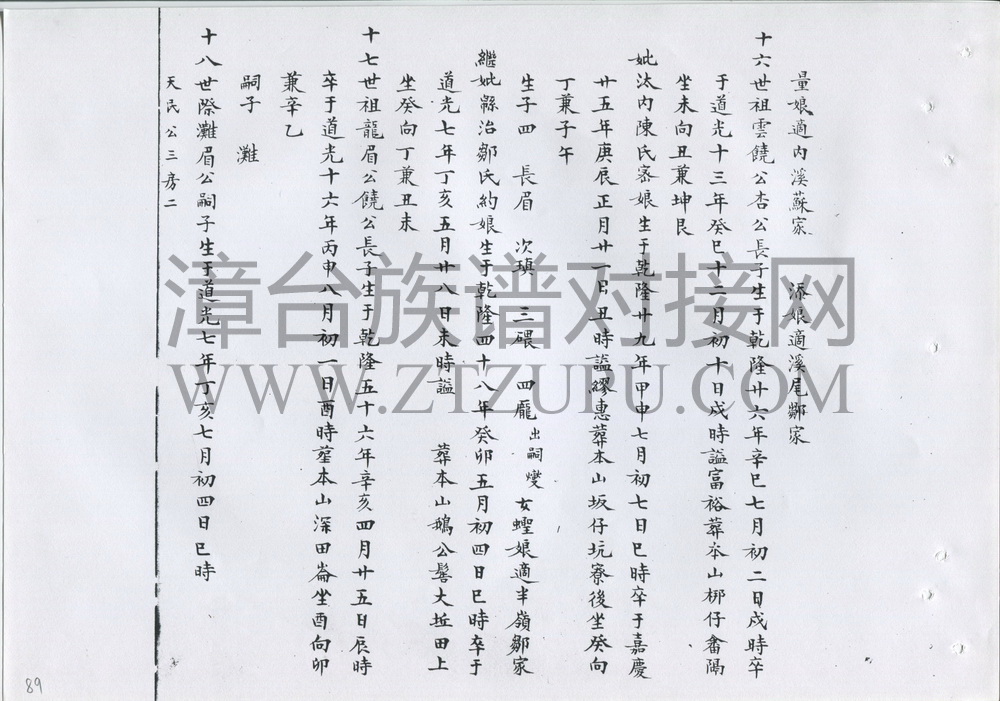 量娘適內溪蘇家 添娘適溪尾鄒家
十六世祖雲饒公杏公長子生于乾隆廿六年辛巳七月初二日戌時卒
于道光十三年癸巳十二月初十日戌時謚富裕葬本山梆仔畬隔
坐未向丑兼坤艮
妣汰內陳氏密娘生于乾隆廿九年甲申七月初七日巳時卒于嘉慶
廿五年庚辰正月廿一日丑時謚繆惠葬本山坂仔坑寮後坐癸向
丁兼子午
生子四 長眉 次瑱 三碨 四龐出嗣燮 女蟶娘適半嶺鄒家
繼妣縣治鄒氏約娘生于乾隆四十八年癸卯五月初四日巳時卒于
道光七年丁亥五月廿八日未時謚 葬本山鵝公髻大坵田上
坐癸向丁兼丑未
十七世祖龍眉公饒公長子生于乾隆五十六年辛亥四月廿五日辰時
卒于道光十六年丙申八月初一日酉時葬本山深田崙坐酉向卯
兼辛乙
嗣子 灘
十八世際灘眉公嗣子生于道光七年丁亥七月初四日巳時
天民公三房二
89
漳台族谱对接网
WWW.ZTZUPU.COM